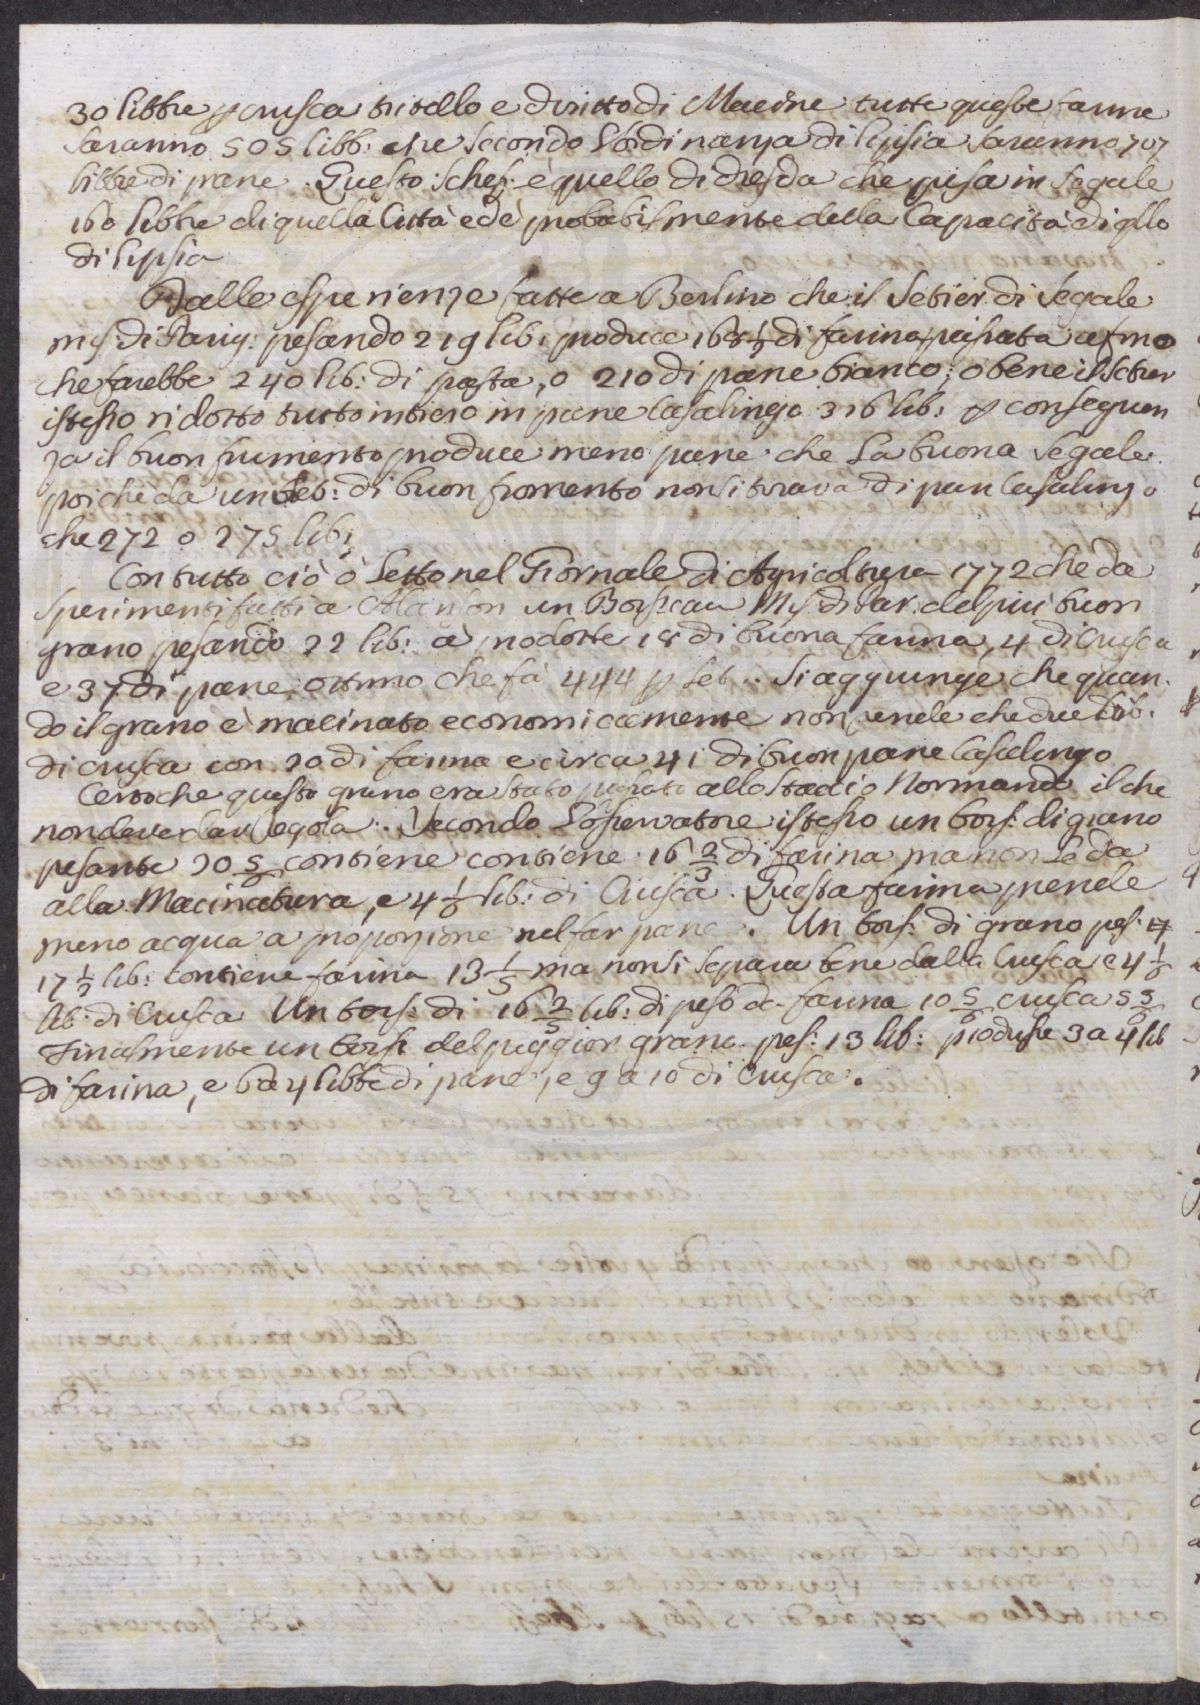 30 libbre p crusca tritello e diritto di Macine tutte queste farine
saranno 505 libb: che secondo l'ordinanza di lipsia saranno 707
libbre di pane. Questo schef: è quello di dresda che pesa in segale
160 libbre di quella Città ed è probabilmente della Capacità di qllo
di lipsia
Dalle esperienze fatte a Berlino che il Setier di segale
mis: di Parig: pesando 219 lib: produce 168 1/2 di farina passata
che farebbe 240 lib: di pasta, o 210 di pane bianco; o bene il setier
istesso ridotto tutto intiero in pane Casalingo 316 lib: p conseguen
za il buon frumento produce meno pane che la buona segale
poiche da un Set: di buon fromento non si tirava di pan Casalingo
che 272 o 275 lib:
Con tutto ciò ò letto nel Giornale di Agricoltura 1772 che da
sperimenti fatti a Alanson un Boisseau Mis di Par. del piu buon
grano pesando 22 lib: à prodotte 18 di buona farina, 4 di Crusca
e 37 di pane ottimo che fà 444 p Set.. Si aggiunge che quan.
do il grano è macinato economicamente non rende che due Lib.
di crusca con 20 di farina e circa 41 di buon pane Casalingo
Certo che questo grano era stato allo stadio Normand il che
non dever dar regola. Secondo l'osservatore istesso un bois: di grano
pesante 20 5/6 contiene contiene 16 2/3 di farina ma non le da
alla Macinatura, e 4 1/6 lib: di Crusca. Questa farina prende
meno acqua a proporzione nel far pane. Un bois: di grano pes: 17
17 1/2 lib: contiene farina 13 1/3 ma non si separa bene dalla Crusca e 4 1/6
lib di Crusca Un bois: di 16 2/3 lib: di peso dà farina 10 5/6 crusca 5 5/6
Finalmente un boiss: del peggior grano pes: 13 lib: produsse 3 a 4 lib
di farina, e 6 a 7 libbe di pane, e 9 a 10 di Crusca.